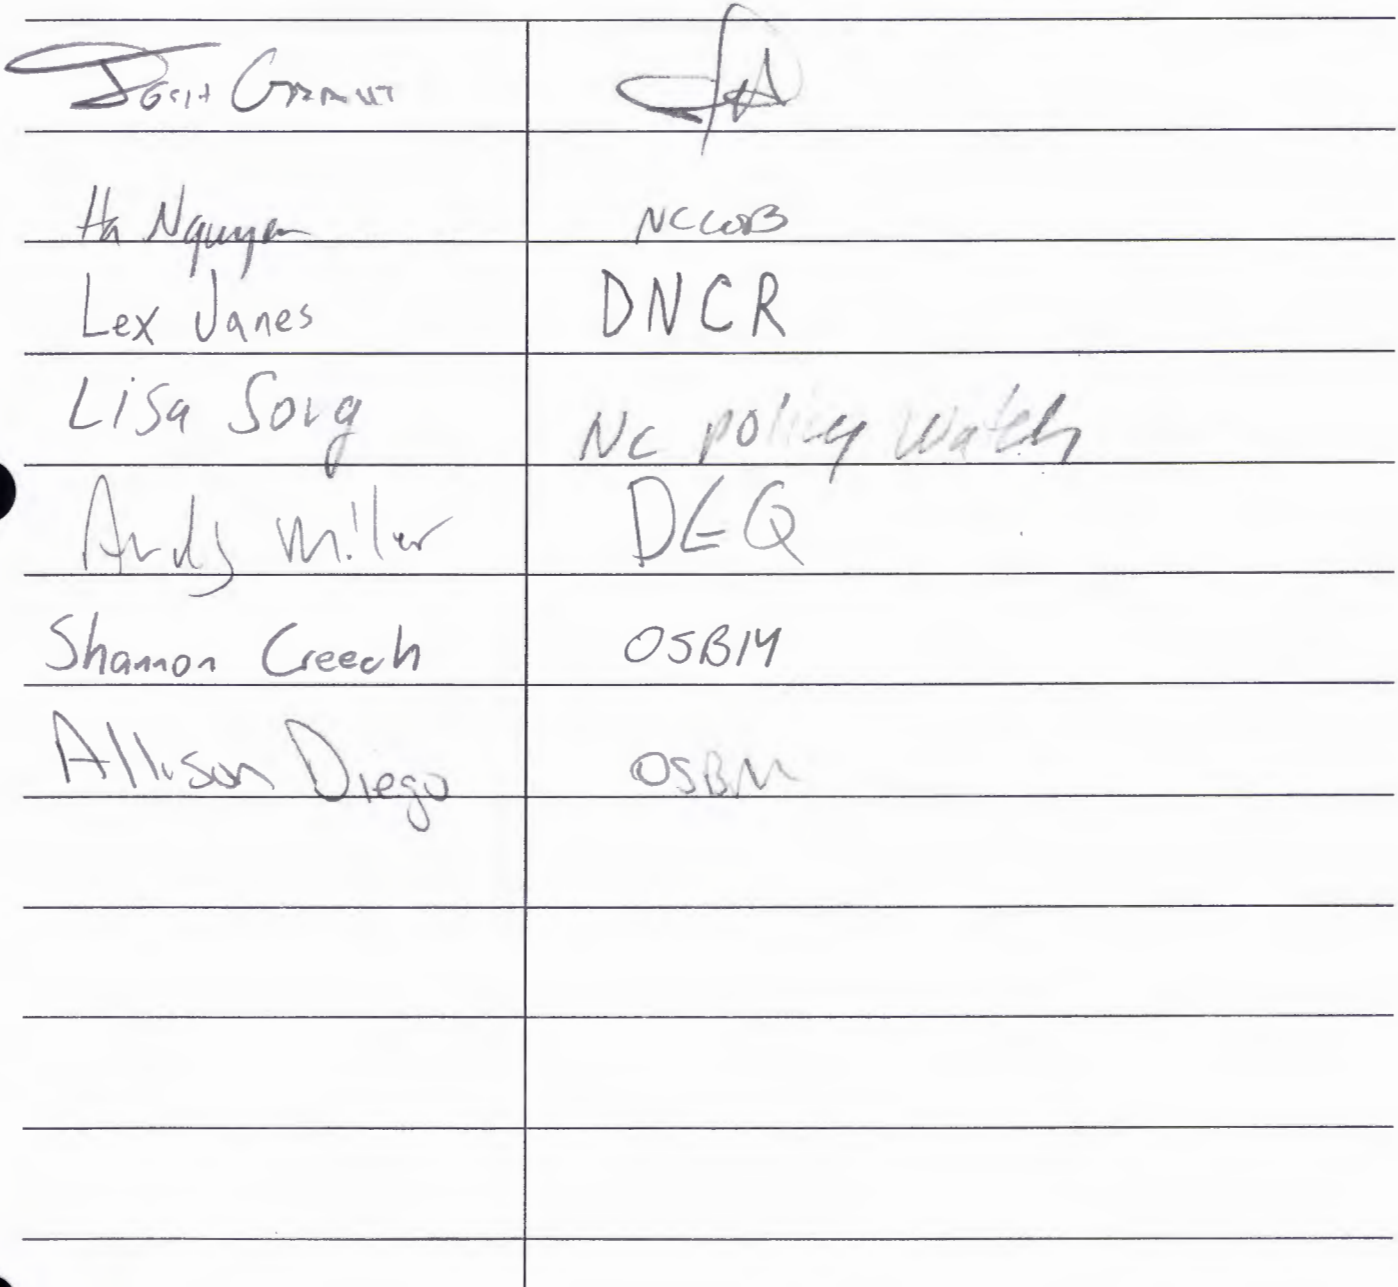 Josh Grant
Ha Nguyen NCCOB
Lex Janes DNCR
Lisa Sorg NC policy watch
Andy Miller DEQ
Shannon Creech OSBM
Allison Diego OSBM